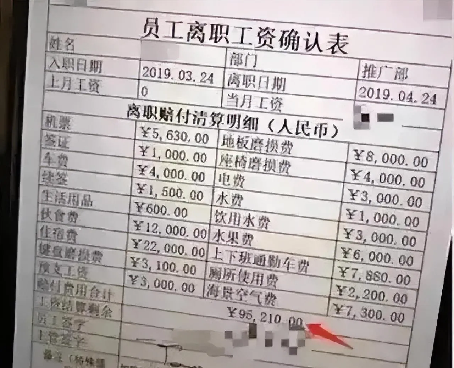 员工离职工资确认表
姓名 部门 推广部
入职日期 2019.03.24 离职日期 2019.04.24
上月工资 0 当月工资
离职赔付清算明细（人民币）
机票 ¥5,630.00 地板磨损费 ¥8,000.00
签证 ¥1,000.00 座椅磨损费 ¥4,000.00
车费 ¥4,000.00 电费 ¥3,000.00
续签 ¥1,500.00 水费 ¥1,000.00
生活用品 ¥600.00 饮用水费 ¥3,000.00
伙食费 ¥12,000.00 水果费 ¥6,000.00
住宿费 ¥22,000.00 上下班通勤车费 ¥7,880.00
键盘磨损费 ¥3,100.00 厕所使用费 ¥2,200.00
预支工资 ¥3,000.00 海景空气费 ¥7,300.00
赔付费用合计 ¥95,210.00
工资结算剩余
员工签字
主管签字
备注（特殊